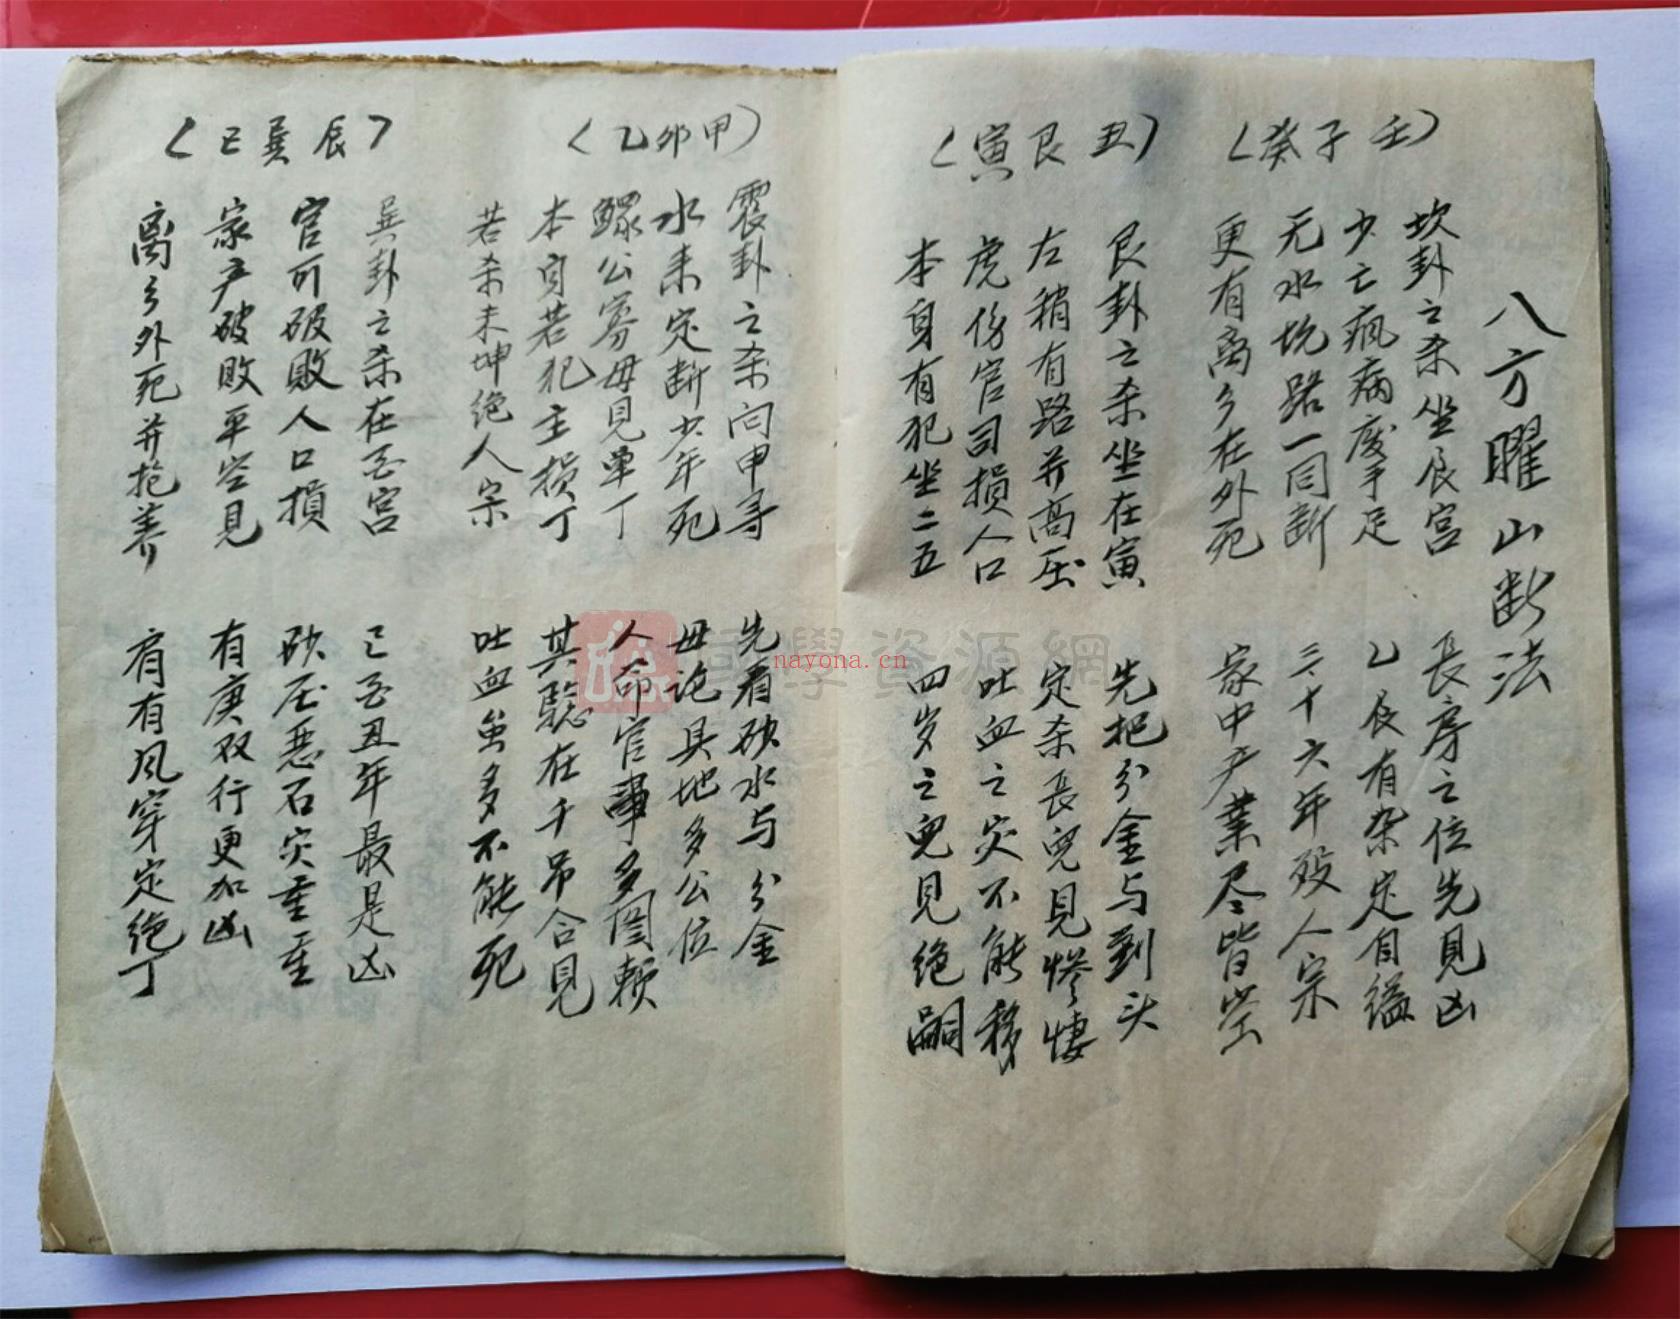 八方曜山断法
（癸子壬）
坎卦之杀坐辰宫
長房之位先見凶
少亡疯病废手足
乙辰有杂定自缢
无水坑路一同断
三十六年殁人宗
更有离乡在外死
家中产業尽皆空
（寅艮丑）
艮卦之杀坐在寅
先把分金与到头
左稍有路并高压
定杀長兒見惨悽
虎傍官司損人口
吐血之灾不能移
本身有犯坐二五
四岁之兒見绝嗣
（乙卯甲）
震卦之杀向申寻
先看砂水与分金
水来定断少年死
母论具地多公位
鳏公寡母見单丁
人命官事多图赖
本身若犯主损丁
其驗在千吊合見
若杀未坤绝人宗
吐血虽多不能死
（巳巽辰）
巽卦之杀在酉宫
己酉丑年最是凶
官司破敗人口損
砂压惡石灾重重
家产破敗平空見
有庚双行更加凶
离乡外死并抱养
肩有风穿定绝丁
國學資源網
nayona.cn